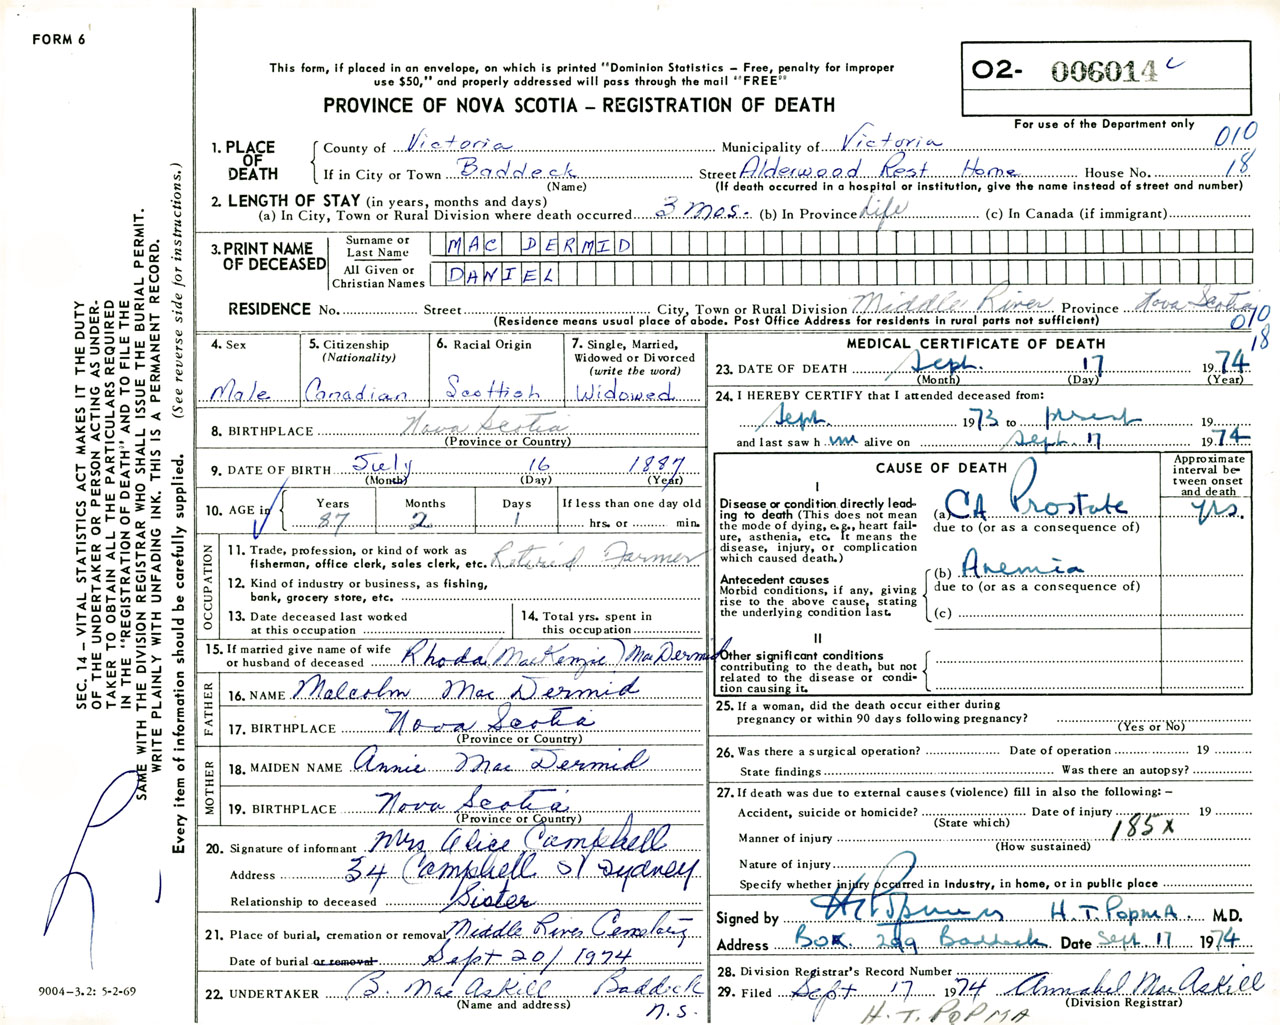 FORM 6
This form, if placed in an envelope, on which is printed "Dominion Statistics – Free, penalty for improper
use $50," and properly addressed will pass through the mail "FREE"
PROVINCE OF NOVA SCOTIA – REGISTRATION OF DEATH
O2- 006014 c
For use of the Department only
010
18
1. PLACE OF DEATH
County of Victoria Municipality of Victoria
If in City or Town Baddeck Street Alderwood Rest Home House No.
(Name) (If death occurred in a hospital or institution, give the name instead of street and number)
2. LENGTH OF STAY (in years, months and days)
(a) In City, Town or Rural Division where death occurred 3 mos. (b) In Province Life (c) In Canada (if immigrant)
3. PRINT NAME OF DECEASED
Surname or Last Name MAC DERMID
All Given or Christian Names DANIEL
RESIDENCE No. Street City, Town or Rural Division Middle River Province Nova Scotia
(Residence means usual place of abode. Post Office Address for residents in rural parts not sufficient)
010
18
4. Sex Male
5. Citizenship (Nationality) Canadian
6. Racial Origin Scottish
7. Single, Married, Widowed or Divorced (write the word) Widowed
8. BIRTHPLACE Nova Scotia
(Province or Country)
9. DATE OF BIRTH July 16 1887
(Month) (Day) (Year)
10. AGE in Years 87 Months 2 Days 1 If less than one day old hrs. or min.
OCCUPATION
11. Trade, profession, or kind of work as
fisherman, office clerk, sales clerk, etc. Retired Farmer
12. Kind of industry or business, as fishing,
bank, grocery store, etc.
13. Date deceased last worked
at this occupation
14. Total yrs. spent in
this occupation
15. If married give name of wife
or husband of deceased Rhoda (MacKenzie) MacDermid
FATHER
16. NAME Malcolm Mac Dermid
17. BIRTHPLACE Nova Scotia
(Province or Country)
MOTHER
18. MAIDEN NAME Annie Mac Dermid
19. BIRTHPLACE Nova Scotia
(Province or Country)
20. Signature of informant Mrs Alice Campbell
Address 34 Campbell St Sydney
Relationship to deceased Sister
21. Place of burial, cremation or removal Middle River Cemetery
Date of burial or removal Sept 20/1974
22. UNDERTAKER B. MacAskill Baddeck
(Name and address) N.S.
MEDICAL CERTIFICATE OF DEATH
23. DATE OF DEATH Sept. 17 1974
(Month) (Day) (Year)
24. I HEREBY CERTIFY that I attended deceased from:
Sept. 1973 to present 19
and last saw him alive on Sept. 17 1974
CAUSE OF DEATH
Approximate interval be-
tween onset
and death
I
Disease or condition directly lead-
ing to death (This does not mean
the mode of dying, e.g., heart fail-
ure, asthenia, etc. It means the
disease, injury, or complication
which caused death.)
(a) CA Prostate yrs.
due to (or as a consequence of)
Antecedent causes
Morbid conditions, if any, giving
rise to the above cause, stating
the underlying condition last.
(b) Anemia
due to (or as a consequence of)
(c)
II
Other significant conditions
contributing to the death, but not
related to the disease or condi-
tion causing it.
25. If a woman, did the death occur either during
pregnancy or within 90 days following pregnancy?
(Yes or No)
26. Was there a surgical operation? Date of operation 19
State findings Was there an autopsy?
27. If death was due to external causes (violence) fill in also the following: –
Accident, suicide or homicide? Date of injury 19
(State which) 185X
Manner of injury
(How sustained)
Nature of injury
Specify whether injury occurred in Industry, in home, or in public place
Signed by H.T. Popma H.T. POPMA. M.D.
Address Box 299 Baddeck Date Sept 17 1974
28. Division Registrar's Record Number
29. Filed Sept 17 1974 Annabel MacAskill
(Division Registrar)
H.T. POPMA
SEC. 14 – VITAL STATISTICS ACT MAKES IT THE DUTY
OF THE UNDERTAKER OR PERSON ACTING AS UNDER-
TAKER TO OBTAIN ALL THE PARTICULARS REQUIRED
IN THE "REGISTRATION OF DEATH" AND TO FILE THE
SAME WITH THE DIVISION REGISTRAR WHO SHALL ISSUE THE BURIAL PERMIT.
WRITE PLAINLY WITH UNFADING INK. THIS IS A PERMANENT RECORD.
Every item of information should be carefully supplied. (See reverse side for instructions.)
9004-3.2: 5-2-69